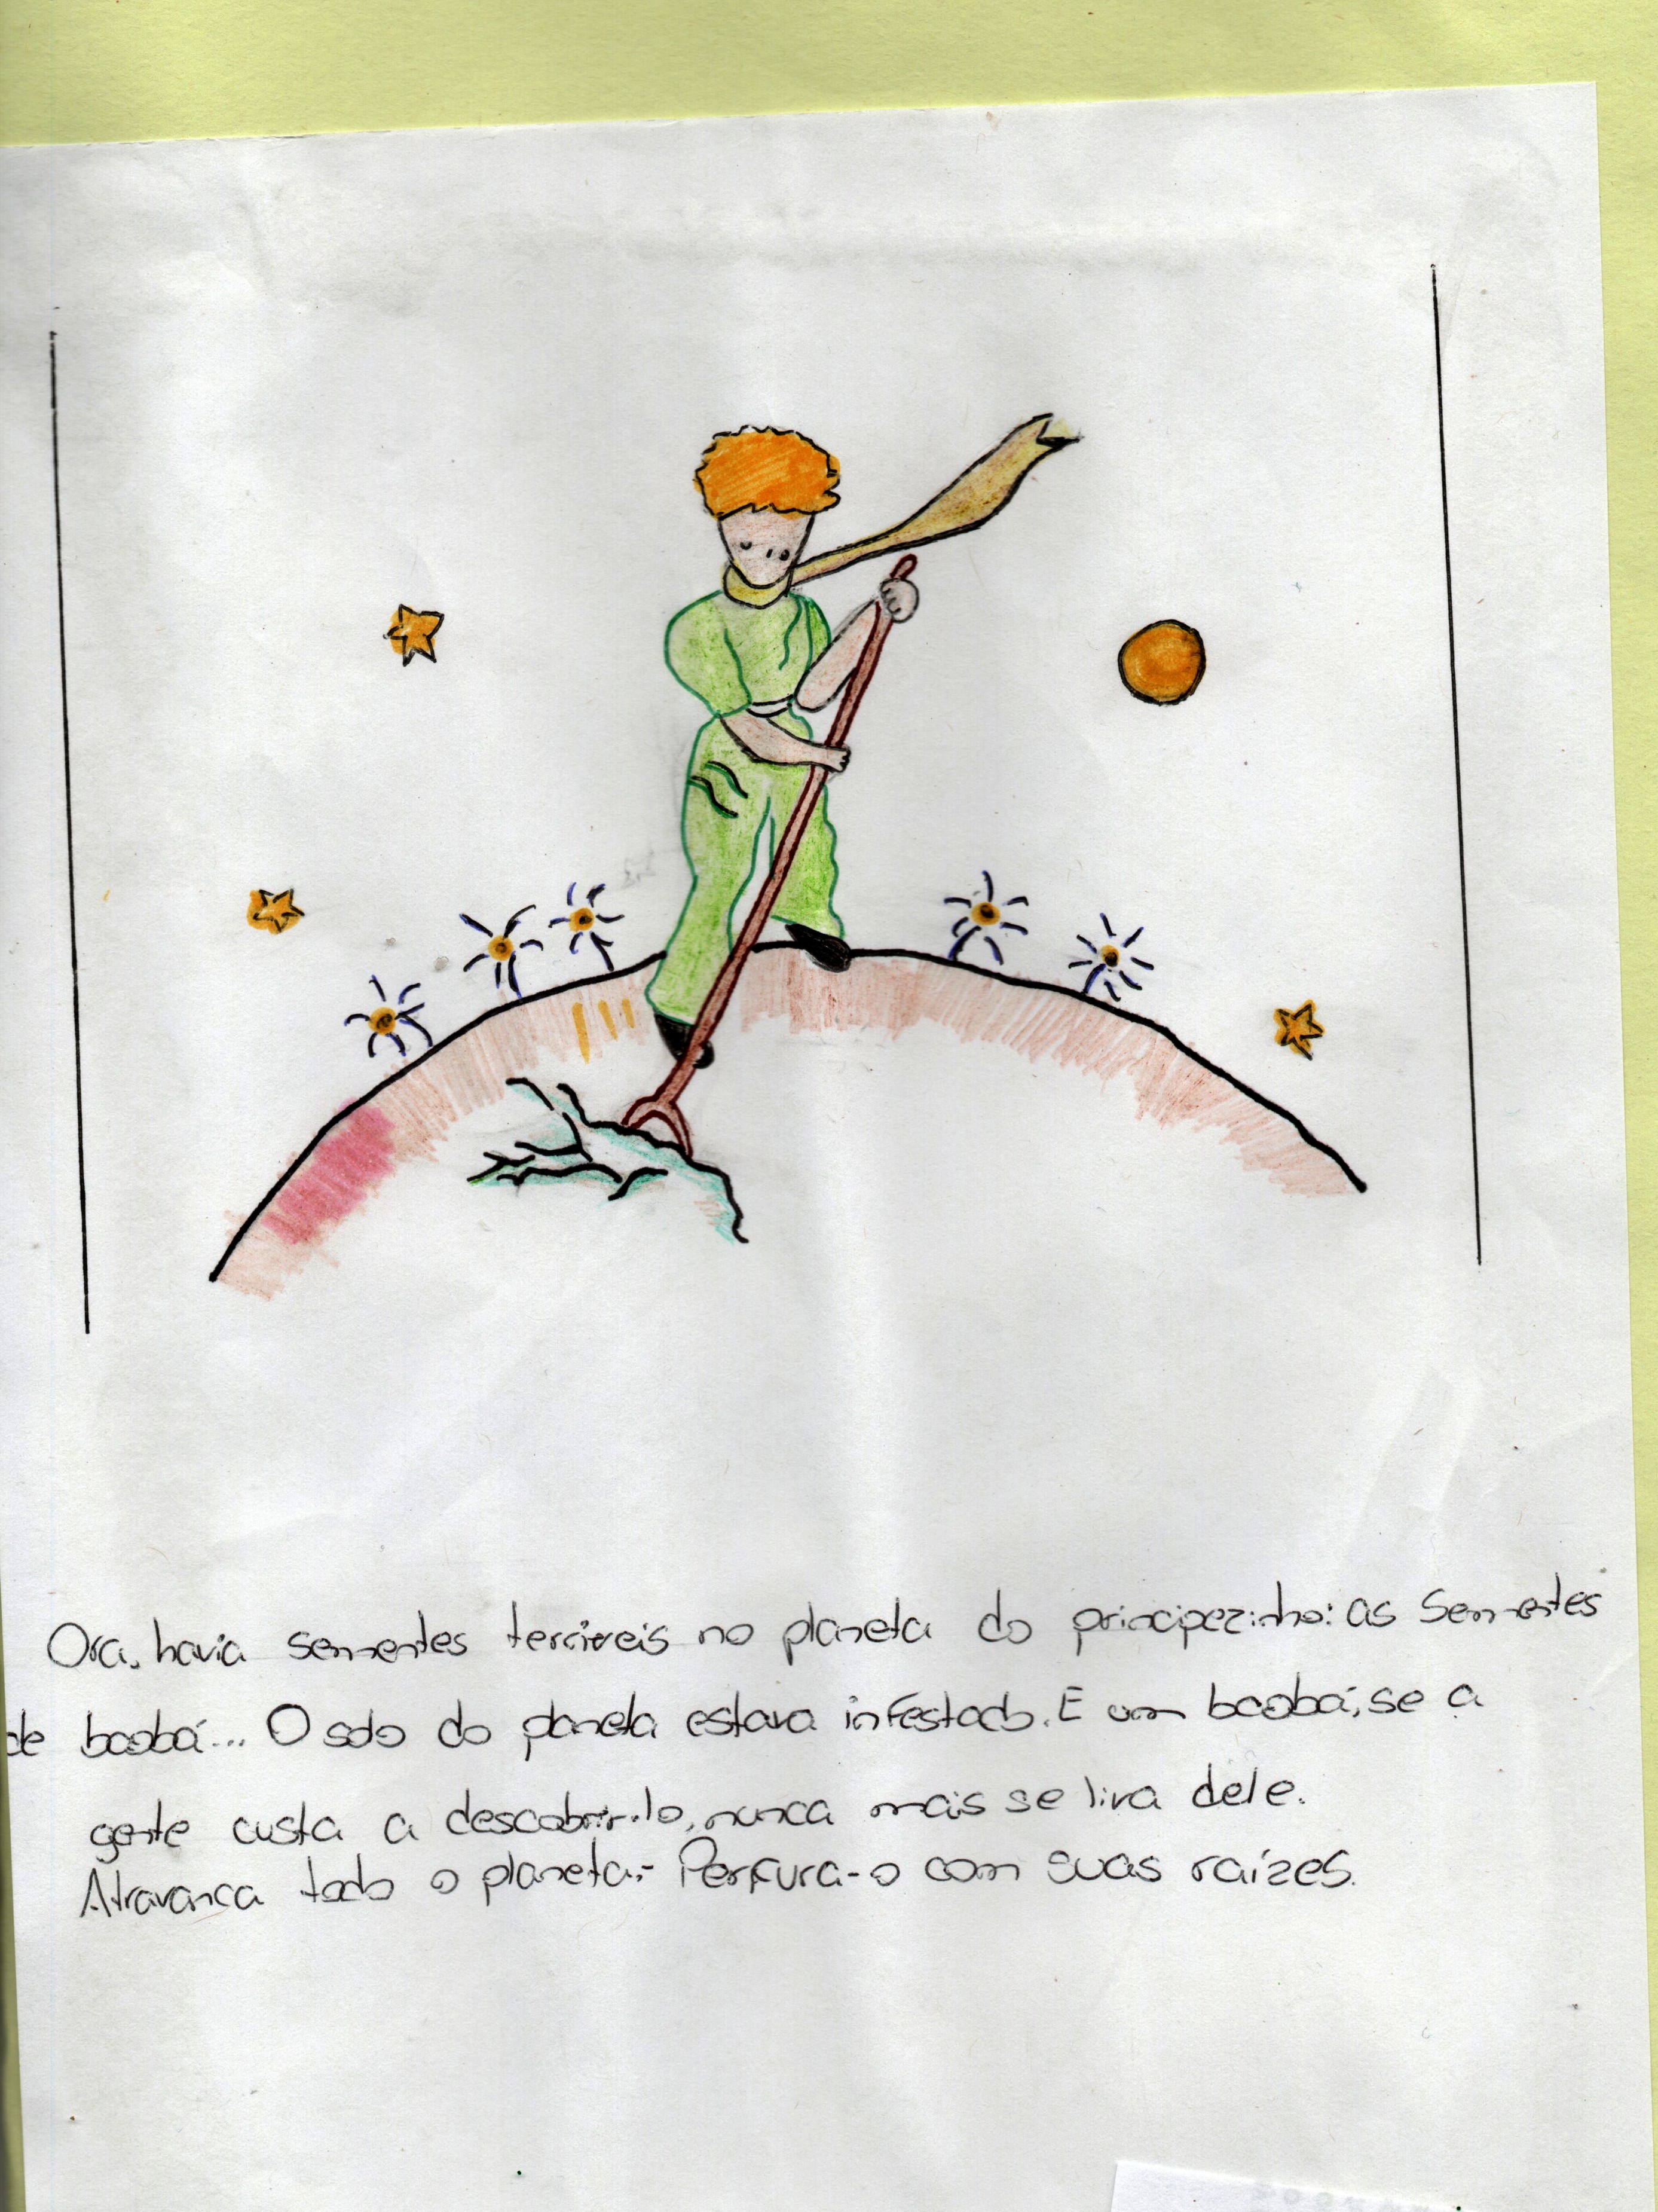 Ora, havia sementes terríveis no planeta do principezinho: as sementes
de baobá... O solo do planeta estava infestado. E um baobá, se a
gente custa a descobri-lo, nunca mais se livra dele.
Atravanca todo o planeta. Perfura-o com suas raízes.